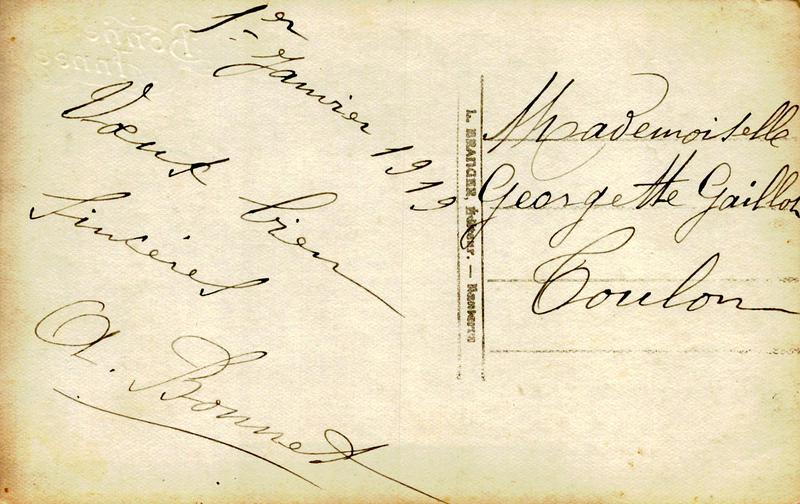 Bonne
Année
1er Janvier 1919
Vœux bien
sincères
A. Bonnet
L. BRANGER, Éditeur. —
Mademoiselle
Georgette Gaillot
Toulon